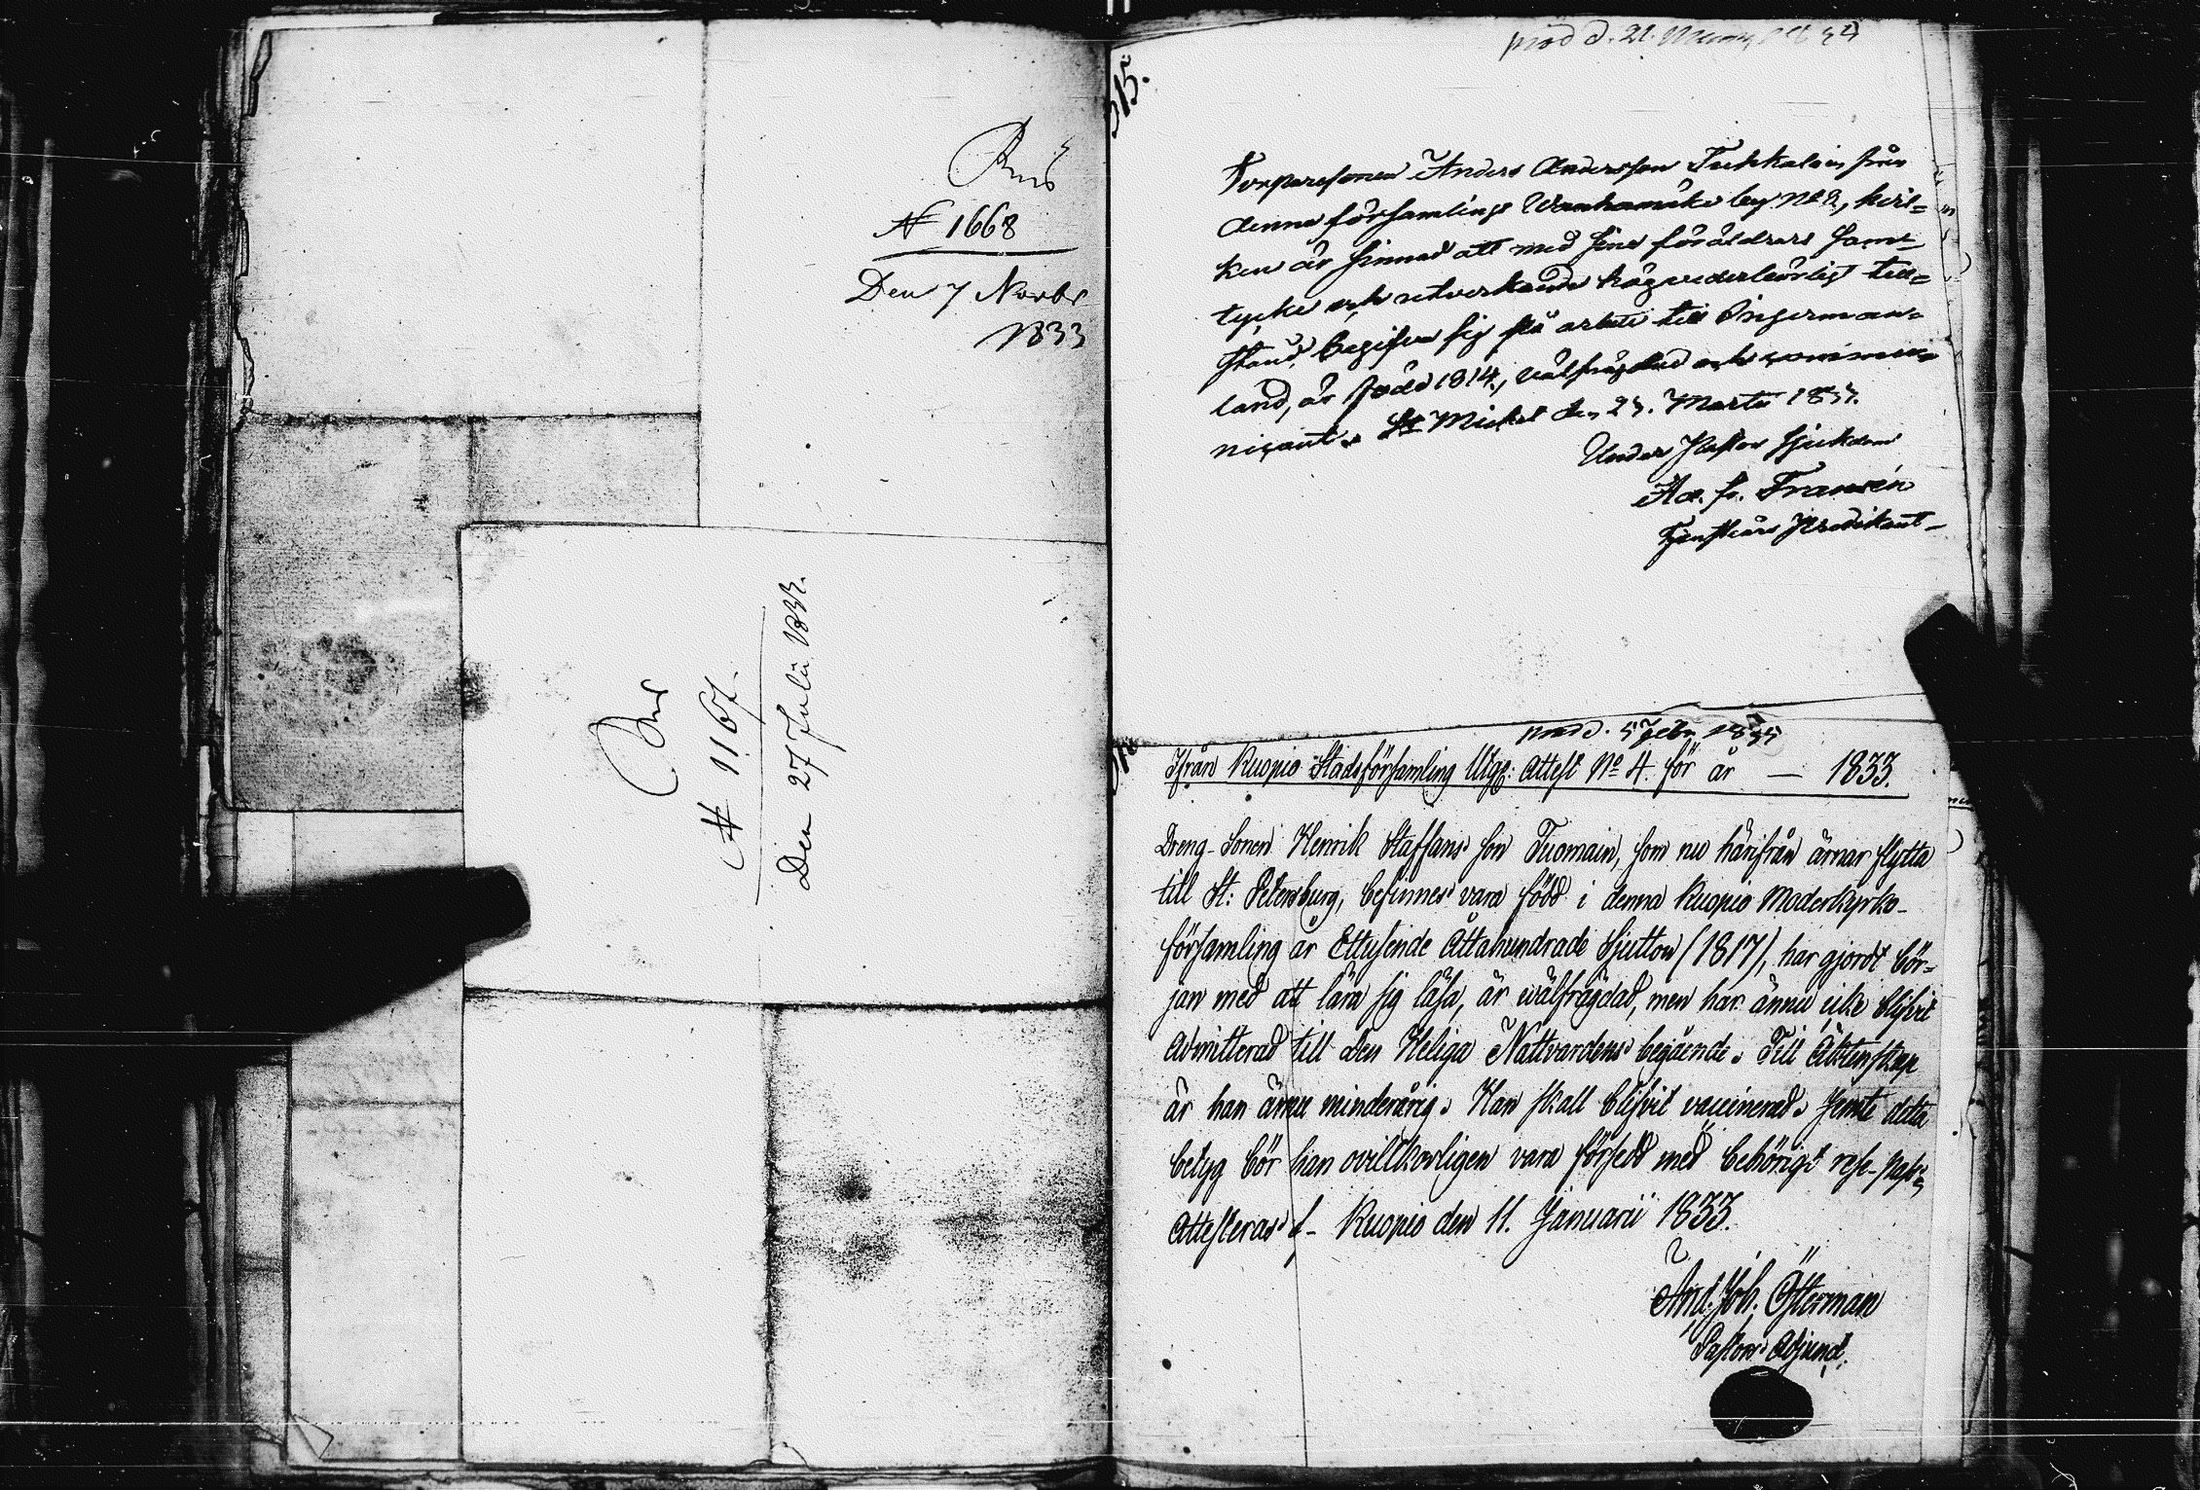 Rus
N 1668
Den 7 Novbr
1833
Rus
N 1167.
Den 27 Julii 1833.
515.
prod d. 21.
Torparesonen Anders Andersson Tuhkalain från
denna församlings Wanhamäki by No 2, hvil-
ken är sinnad att med sina föräldrars sam-
tycke och utverkande högvederbörligt till-
stånd, begifva sig på arbete till Ingerman-
land, är född 1814, välfrägdad och commu-
nicant. St Michel den 23. Martii 1833.
Under Pastors sjukdom
Ad. Fr. Fransén
Tjenstförr. Predikant
prod d. 5 Febr
Ifrån Kuopio Stadsförsamling Utgg: Attest No 4. för år — 1833.
Dreng-Sonen Henrik Staffans son Tuomain, som nu härifrån ärnar flytta
till St: Petersburg, befinnes vara född i denna Kuopio Moderkyrko-
församling år Ettusende Åttahundrade Sjutton (1817), har gjordt bör-
jan med att lära sig läsa, är wälfrägdad, men har ännu icke blifvit
admitterad till Den Heliga Nattvardens begående. Till Äktenskap
är han ännu minderårig. Han skall blifvit vaccinerad. Jemte detta
betyg bör han ovillkorligen vara försedd med behörigt rese-pass,
Attesteras f- Kuopio den 11. Januarii 1833.
And. Joh. Österman
Pastors Adjunct.